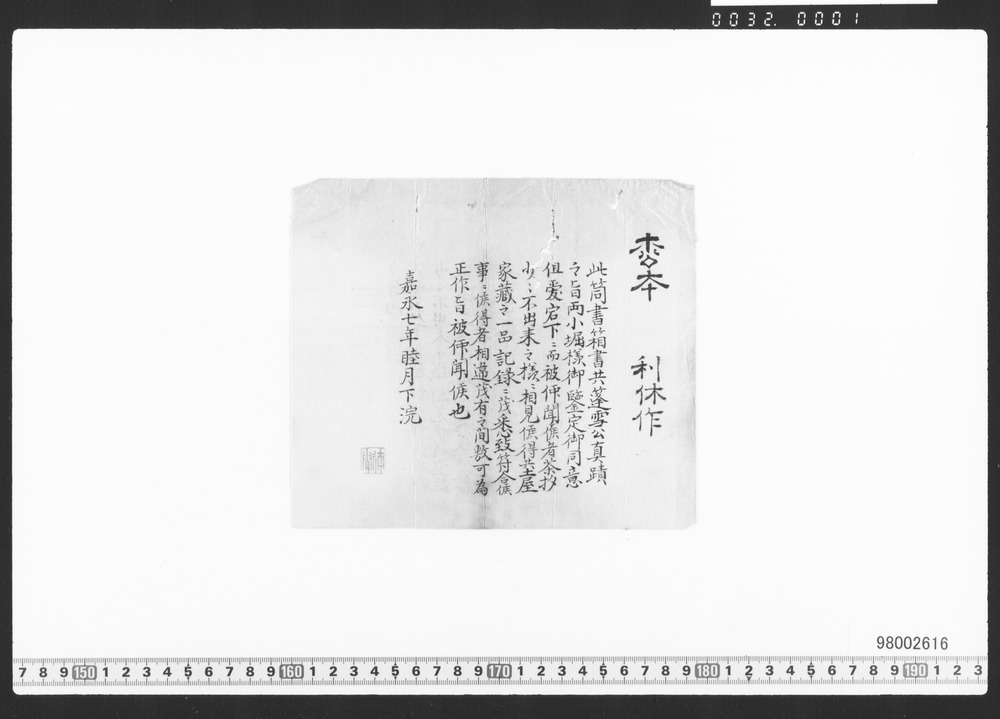 0032. 0001
利休作
此筒書箱書共蓬雪公真蹟
之旨両小堀様御鑒定御同意
但 宕下ニ而被仰聞候者茶抄
少々不出来之様ニ相見候得共土屋
家蔵之一品記録ニ茂悉致符合候
事ニ候得者相違茂有之間敷可為
正作旨被仰聞候也
嘉永七年睦月下浣
98002616
7 8 9 150 1 2 3 4 5 6 7 8 9 160 1 2 3 4 5 6 7 8 9 170 1 2 3 4 5 6 7 8 9 180 1 2 3 4 5 6 7 8 9 190 1 2 3